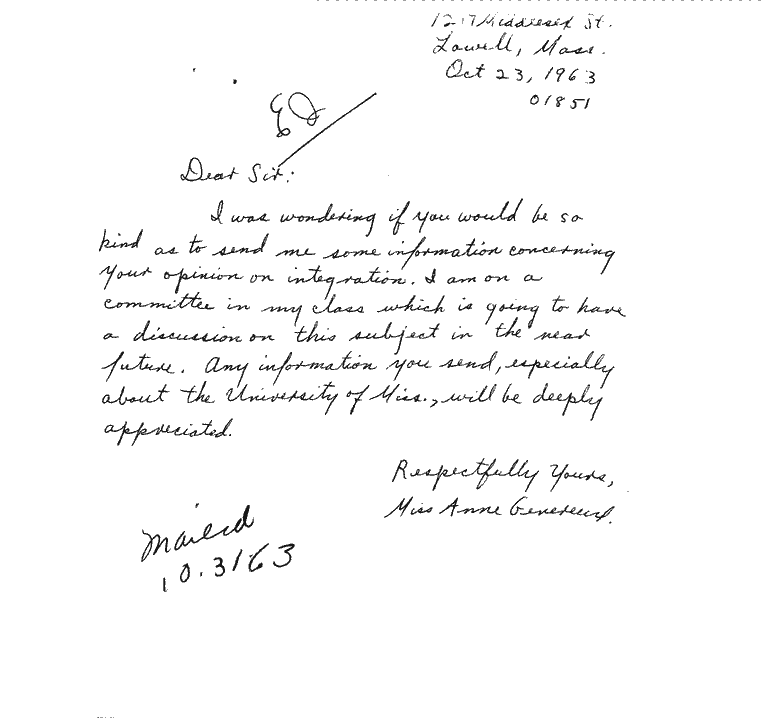 Middlesex St.
Lowell, Mass.
Oct 23, 1963
01851
Dear Sir:
I was wondering if you would be so
kind as to send me some information concerning
your opinion on integration. I am on a
committee in my class which is going to have
a discussion on this subject in the near
future. Any information you send, especially
about the University of Miss., will be deeply
appreciated.
Respectfully Yours,
Miss Anne
Mailed
10.31 63